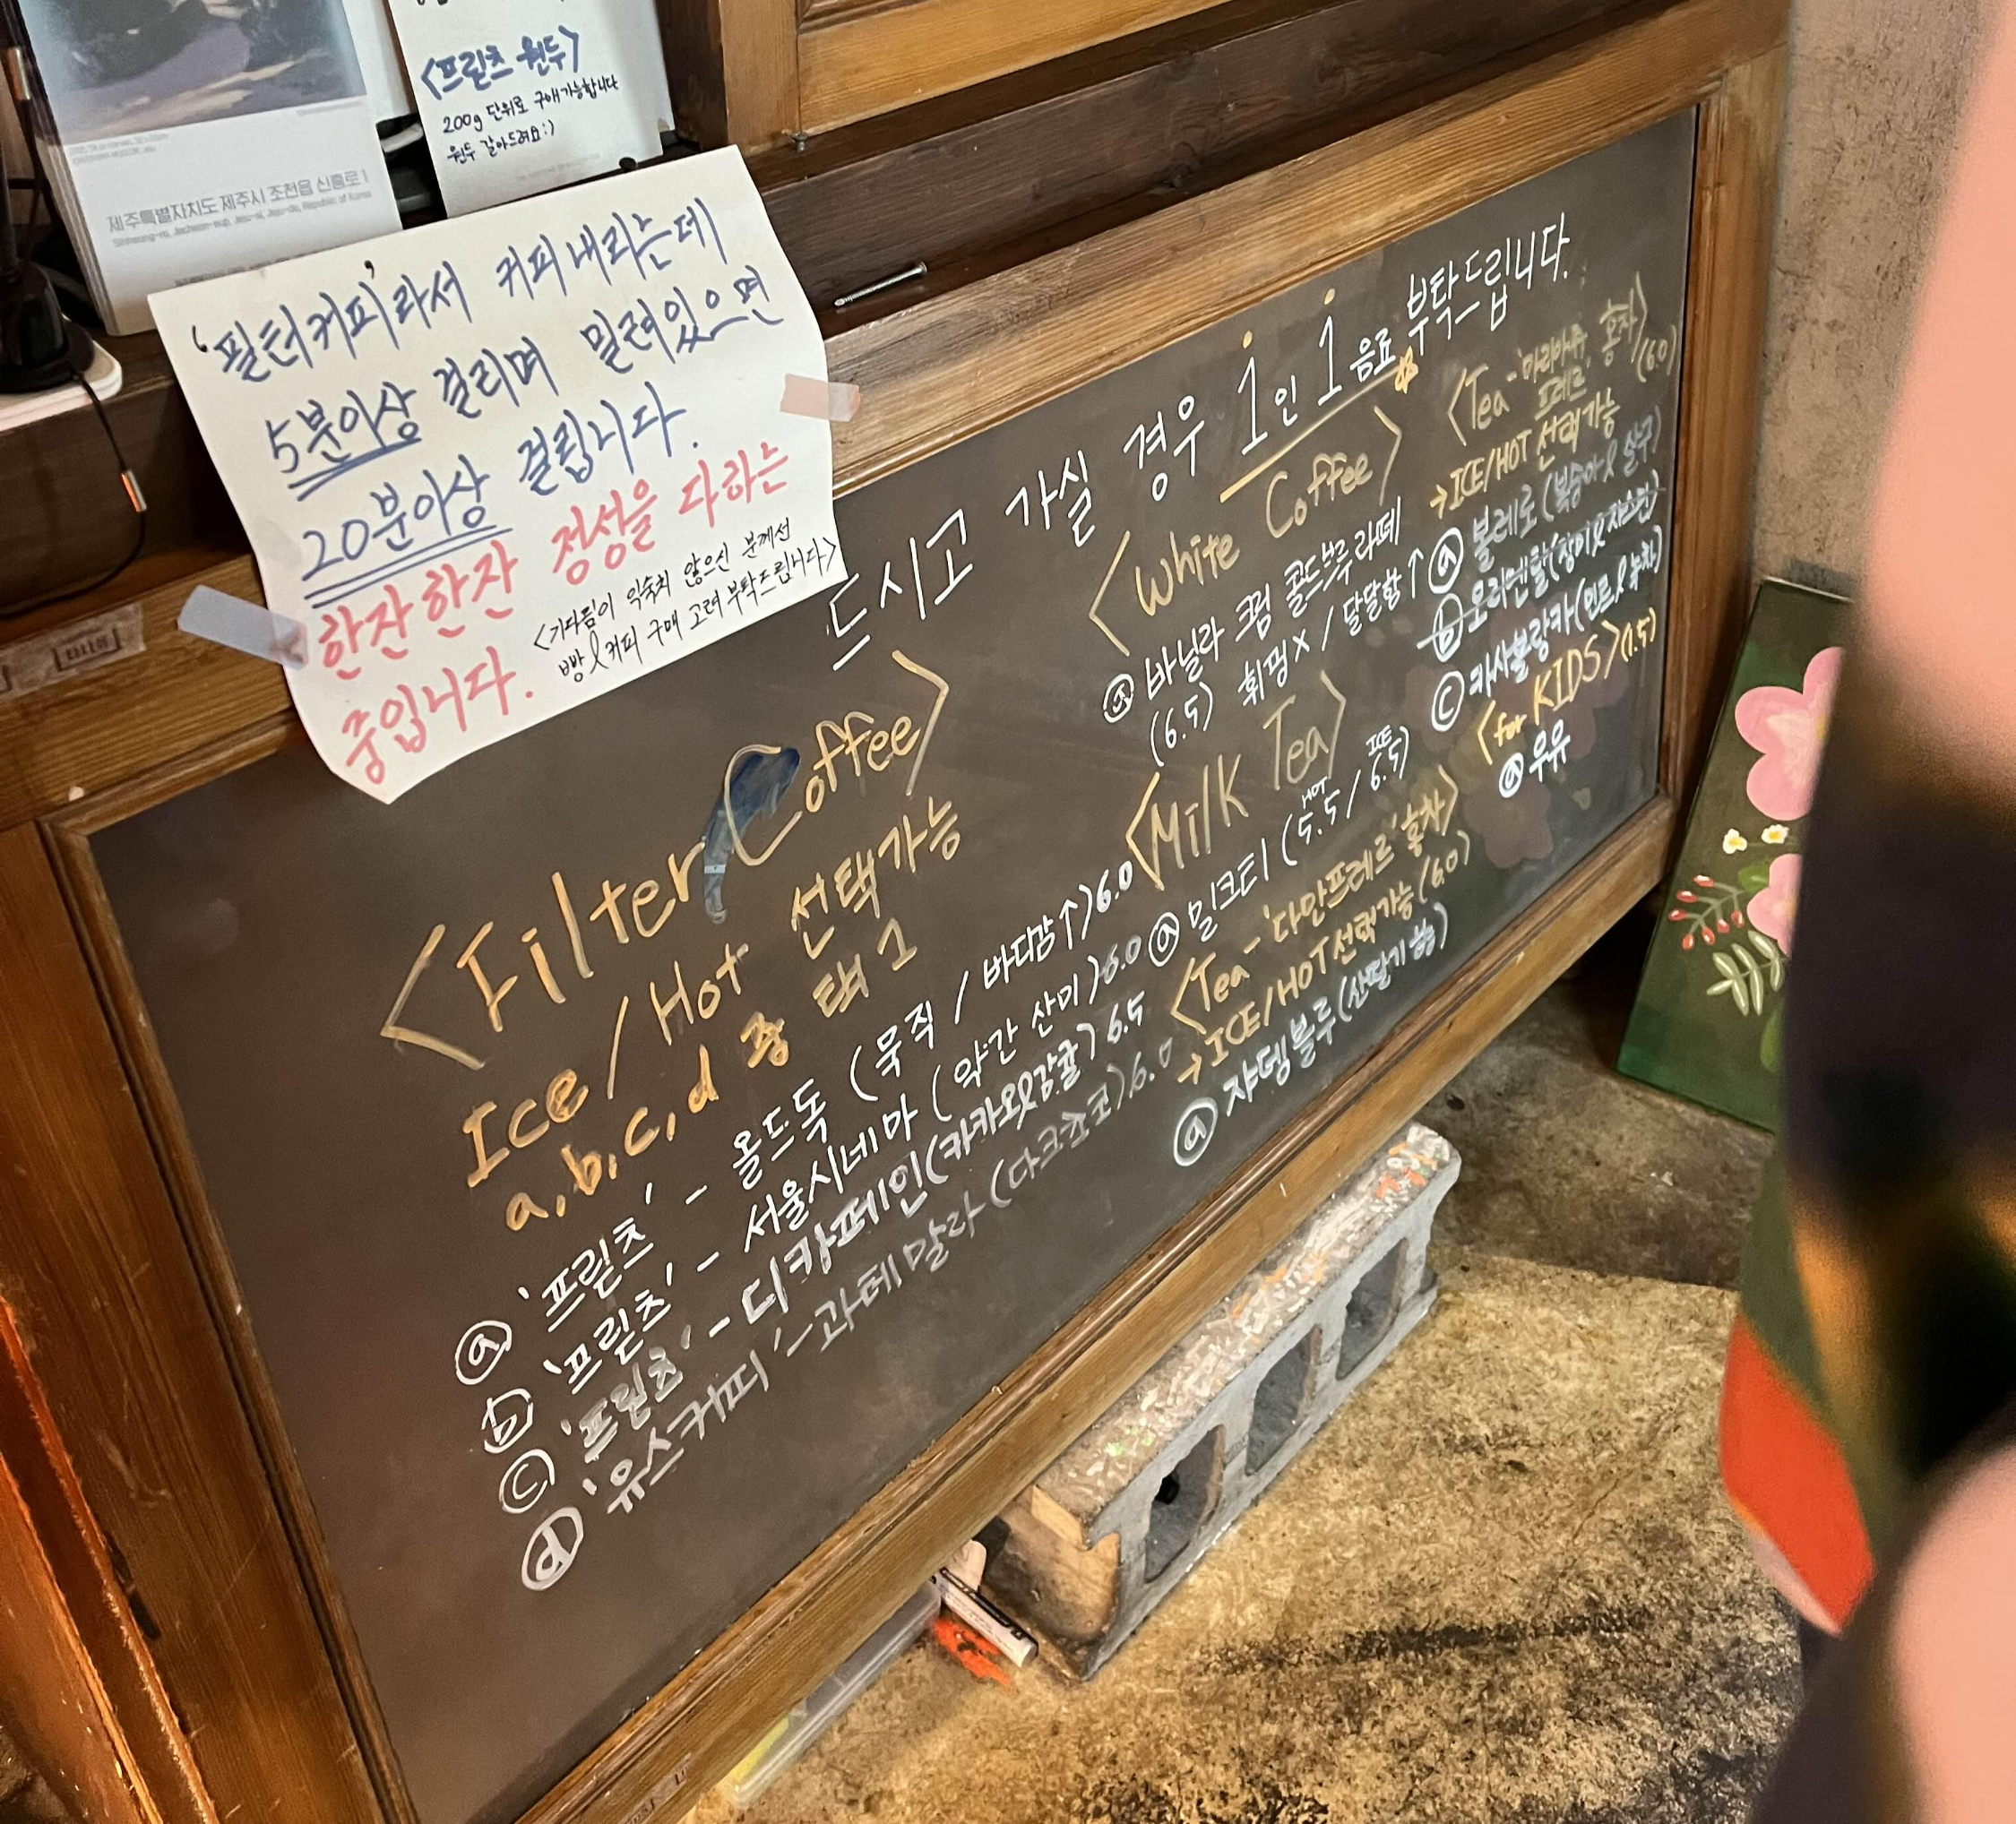 <프릳츠 원두>
200g 단위로 구매가능합니다
원두 갈아드려요:)
제주특별자치도 제주시 조천읍 신흥로 1
Sinheung-ro, Jocheon-eup, Jeju-si, Jeju-do, Republic of Korea
'필터커피'라서 커피 내리는데
5분이상 걸리며 밀려있으면
20분이상 걸립니다.
한잔한잔 정성을 다하는
중입니다.
<기다림이 익숙치 않으신 분께선
빵&커피 구매 고려 부탁드립니다>
드시고 가실 경우 1인 1음료 부탁드립니다.
<Filter Coffee>
Ice/Hot 선택가능
a, b, c, d 중 택 1
ⓐ '프릳츠' - 올드독 (묵직 / 바디감↑) 6.0
ⓑ '프릳츠' - 서울시네마 (약간 산미) 6.0
ⓒ '프릳츠' - 디카페인 (카카오&감귤) 6.5
ⓓ '유스커피' - 과테말라 (다크쵸코) 6.0
<White Coffee>
ⓐ 바닐라 크림 콜드브루 라떼
(6.5) 휘핑X / 달달함↑
<Milk Tea>
ⓐ 밀크티 (HOT 5.5 / ICE 6.5)
<Tea - '다만프레르' 홍차>
→ICE/HOT선택가능 (6.0)
ⓐ 쟈뎅블루 (산딸기 향)
<Tea - '마리아쥬 프레르' 홍차> (6.0)
→ICE/HOT 선택가능
ⓐ 볼레로 (복숭아 & 살구)
ⓑ 오리엔탈 (장미 & 자스민)
ⓒ 카사블랑카 (민트 & 녹차)
<for KIDS> (1.5)
ⓐ 우유